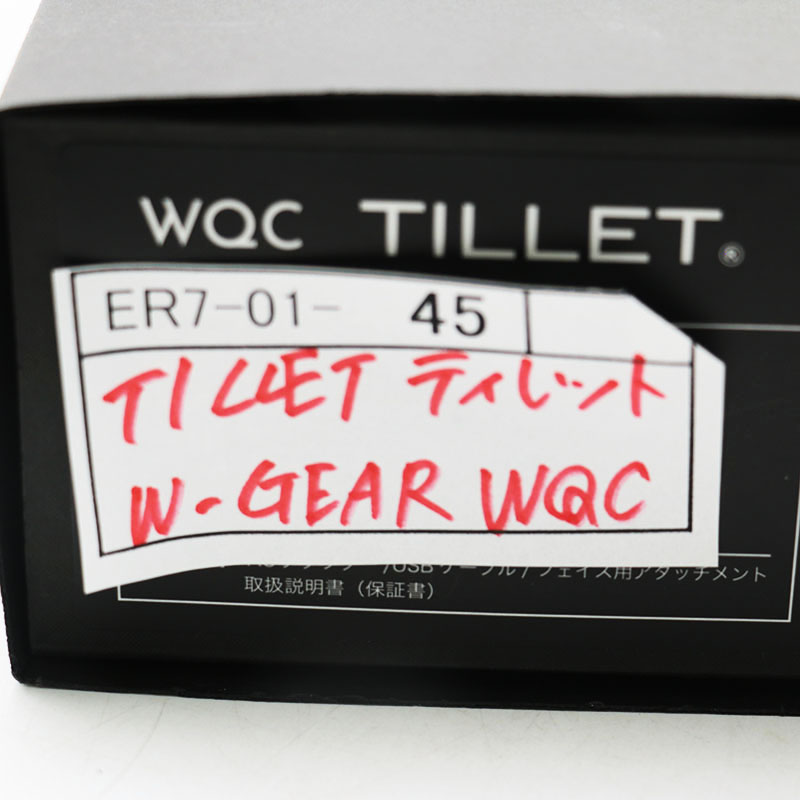 WQC TILLET®
ER7-01- 45
TILLET ティレット
W-GEAR WQC
/USBケーブル/フェイス用アタッチメント
取扱説明書（保証書）